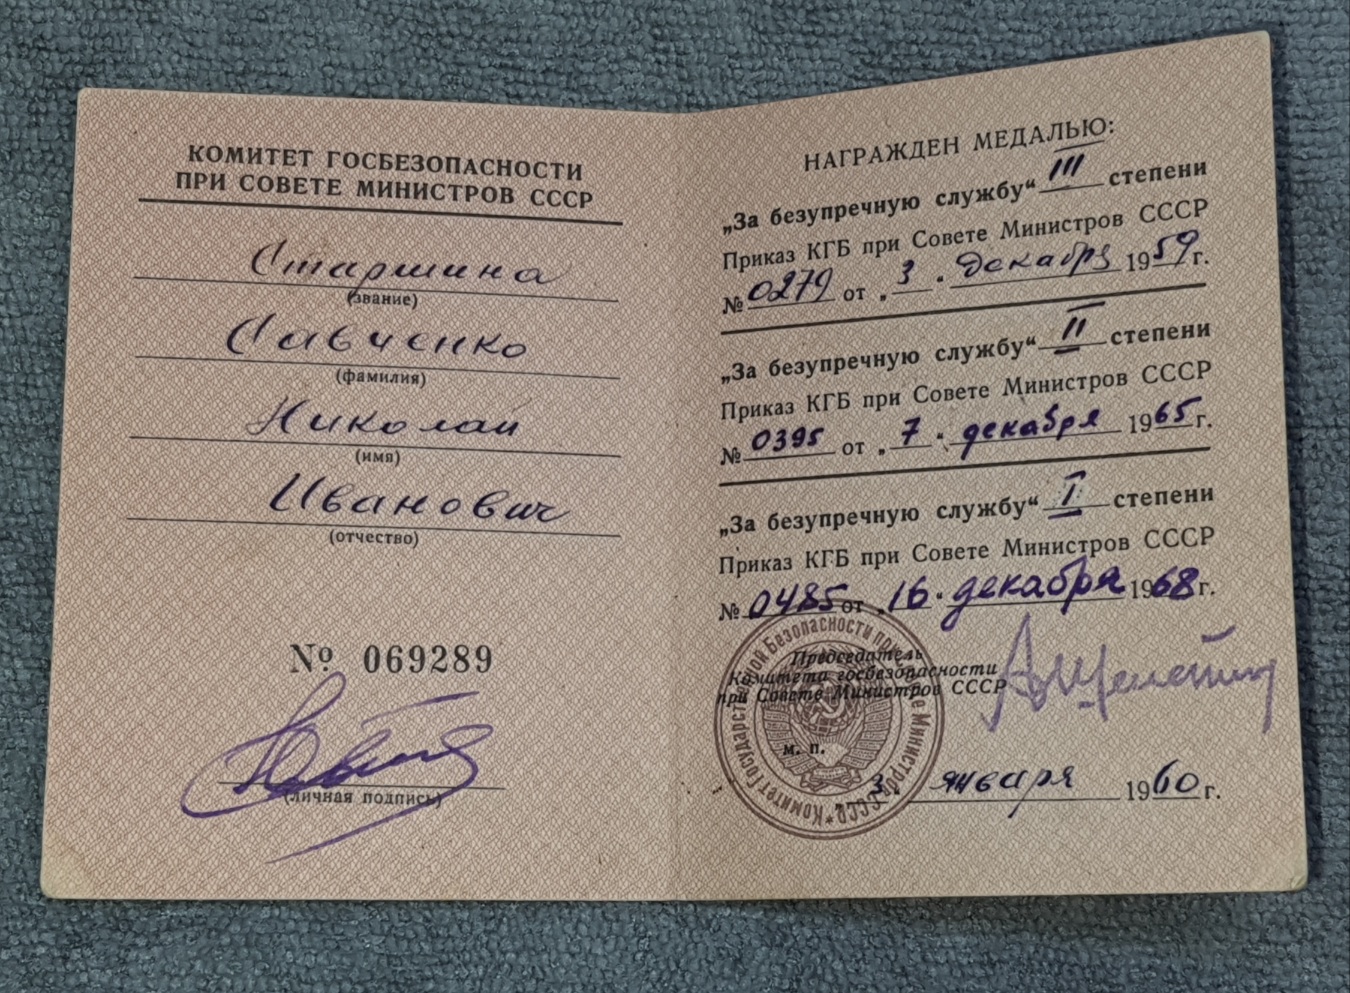 КОМИТЕТ ГОСБЕЗОПАСНОСТИ
ПРИ СОВЕТЕ МИНИСТРОВ СССР
Старшина
(звание)
Савченко
(фамилия)
Николай
(имя)
Иванович
(отчество)
№ 069289
(личная подпись)
НАГРАЖДЕН МЕДАЛЬЮ:
„За безупречную службу“ III степени
Приказ КГБ при Совете Министров СССР
№ 0279 от „3“ декабря 1959 г.
„За безупречную службу“ II степени
Приказ КГБ при Совете Министров СССР
№ 0395 от „7“ декабря 1965 г.
„За безупречную службу“ I степени
Приказ КГБ при Совете Министров СССР
№ 0485 от „16“ декабря 1968 г.
Председатель
Комитета госбезопасности
при Совете Министров СССР
А Шелепин
м. п.
3 января 1960 г.
Комитет Государственной Безопасности при Совете Министров СССР *